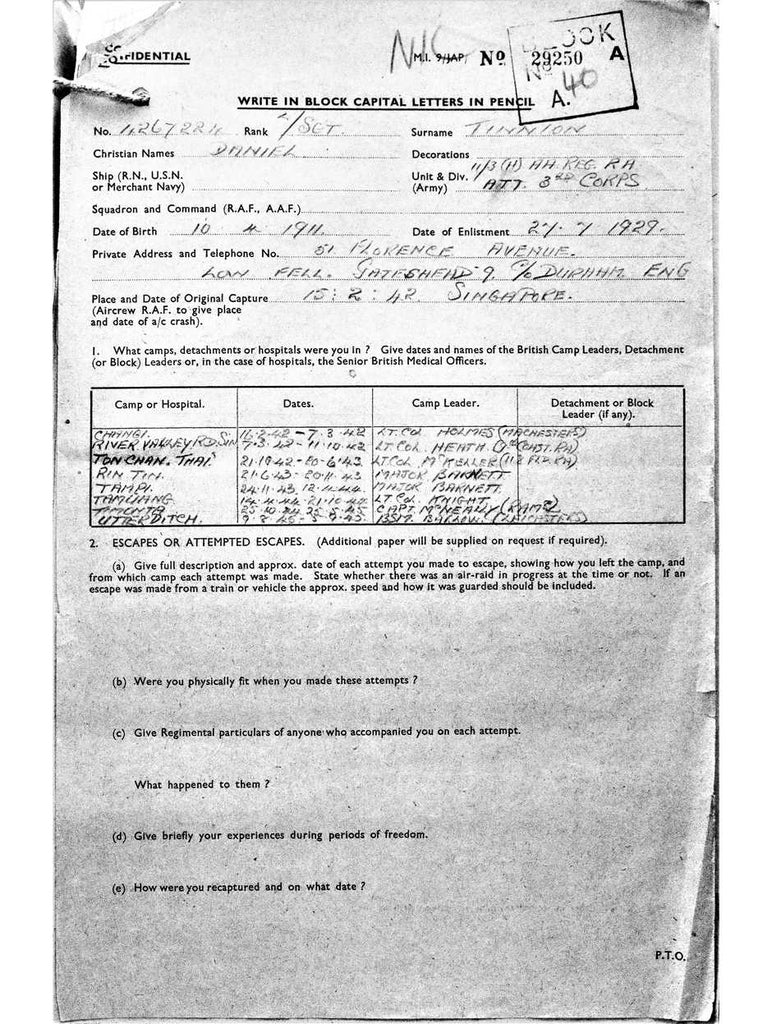 CONFIDENTIAL
M.I. 9/JAP No 29250 A
BLOCK
No 40
A.
WRITE IN BLOCK CAPITAL LETTERS IN PENCIL
No. 4267224 Rank L/SGT. Surname TINNION
Christian Names DANIEL Decorations
Ship (R.N., U.S.N. or Merchant Navy) Unit & Div. (Army) 11/3(H) AA. REG. RA
ATT. 3RD CORPS
Squadron and Command (R.A.F., A.A.F.)
Date of Birth 10 4 1911 Date of Enlistment 27 7 1929.
Private Address and Telephone No. 51 FLORENCE AVENUE.
LOW FELL. GATESHEAD 9. C/O DURHAM ENG
Place and Date of Original Capture 15:2:42 SINGAPORE.
(Aircrew R.A.F. to give place
and date of a/c crash).
1. What camps, detachments or hospitals were you in ? Give dates and names of the British Camp Leaders, Detachment
(or Block) Leaders or, in the case of hospitals, the Senior British Medical Officers.
Camp or Hospital. Dates. Camp Leader. Detachment or Block
Leader (if any).
CHANGI. 16.2.42 – 7.3.42 LT. COL HOLMES (MACHESTERS)
RIVER VALLEY RD. SIN 7.3.42 – 11.10.42 LT COL HEATH (COAST. RA)
TONCHAN. THAI. 21.10.42 – 20.6.43. LT COL McKELLER (112 FLD. RA)
RIN TIN. 21.6.43 – 20.11.43 MAJOR BARNETT
TAMPI. 24.11.43 12.4.44. MAJOR BARNETT.
TAMUANG 14.4.44 – 21.10.44 LT COL. KNIGHT.
25.10.44 CAPT. McNEALLY (RAMC)
BSM.
2. ESCAPES OR ATTEMPTED ESCAPES. (Additional paper will be supplied on request if required).
(a) Give full description and approx. date of each attempt you made to escape, showing how you left the camp, and
from which camp each attempt was made. State whether there was an air-raid in progress at the time or not. If an
escape was made from a train or vehicle the approx. speed and how it was guarded should be included.
(b) Were you physically fit when you made these attempts ?
(c) Give Regimental particulars of anyone who accompanied you on each attempt.
What happened to them ?
(d) Give briefly your experiences during periods of freedom.
(e) How were you recaptured and on what date ?
P.T.O.